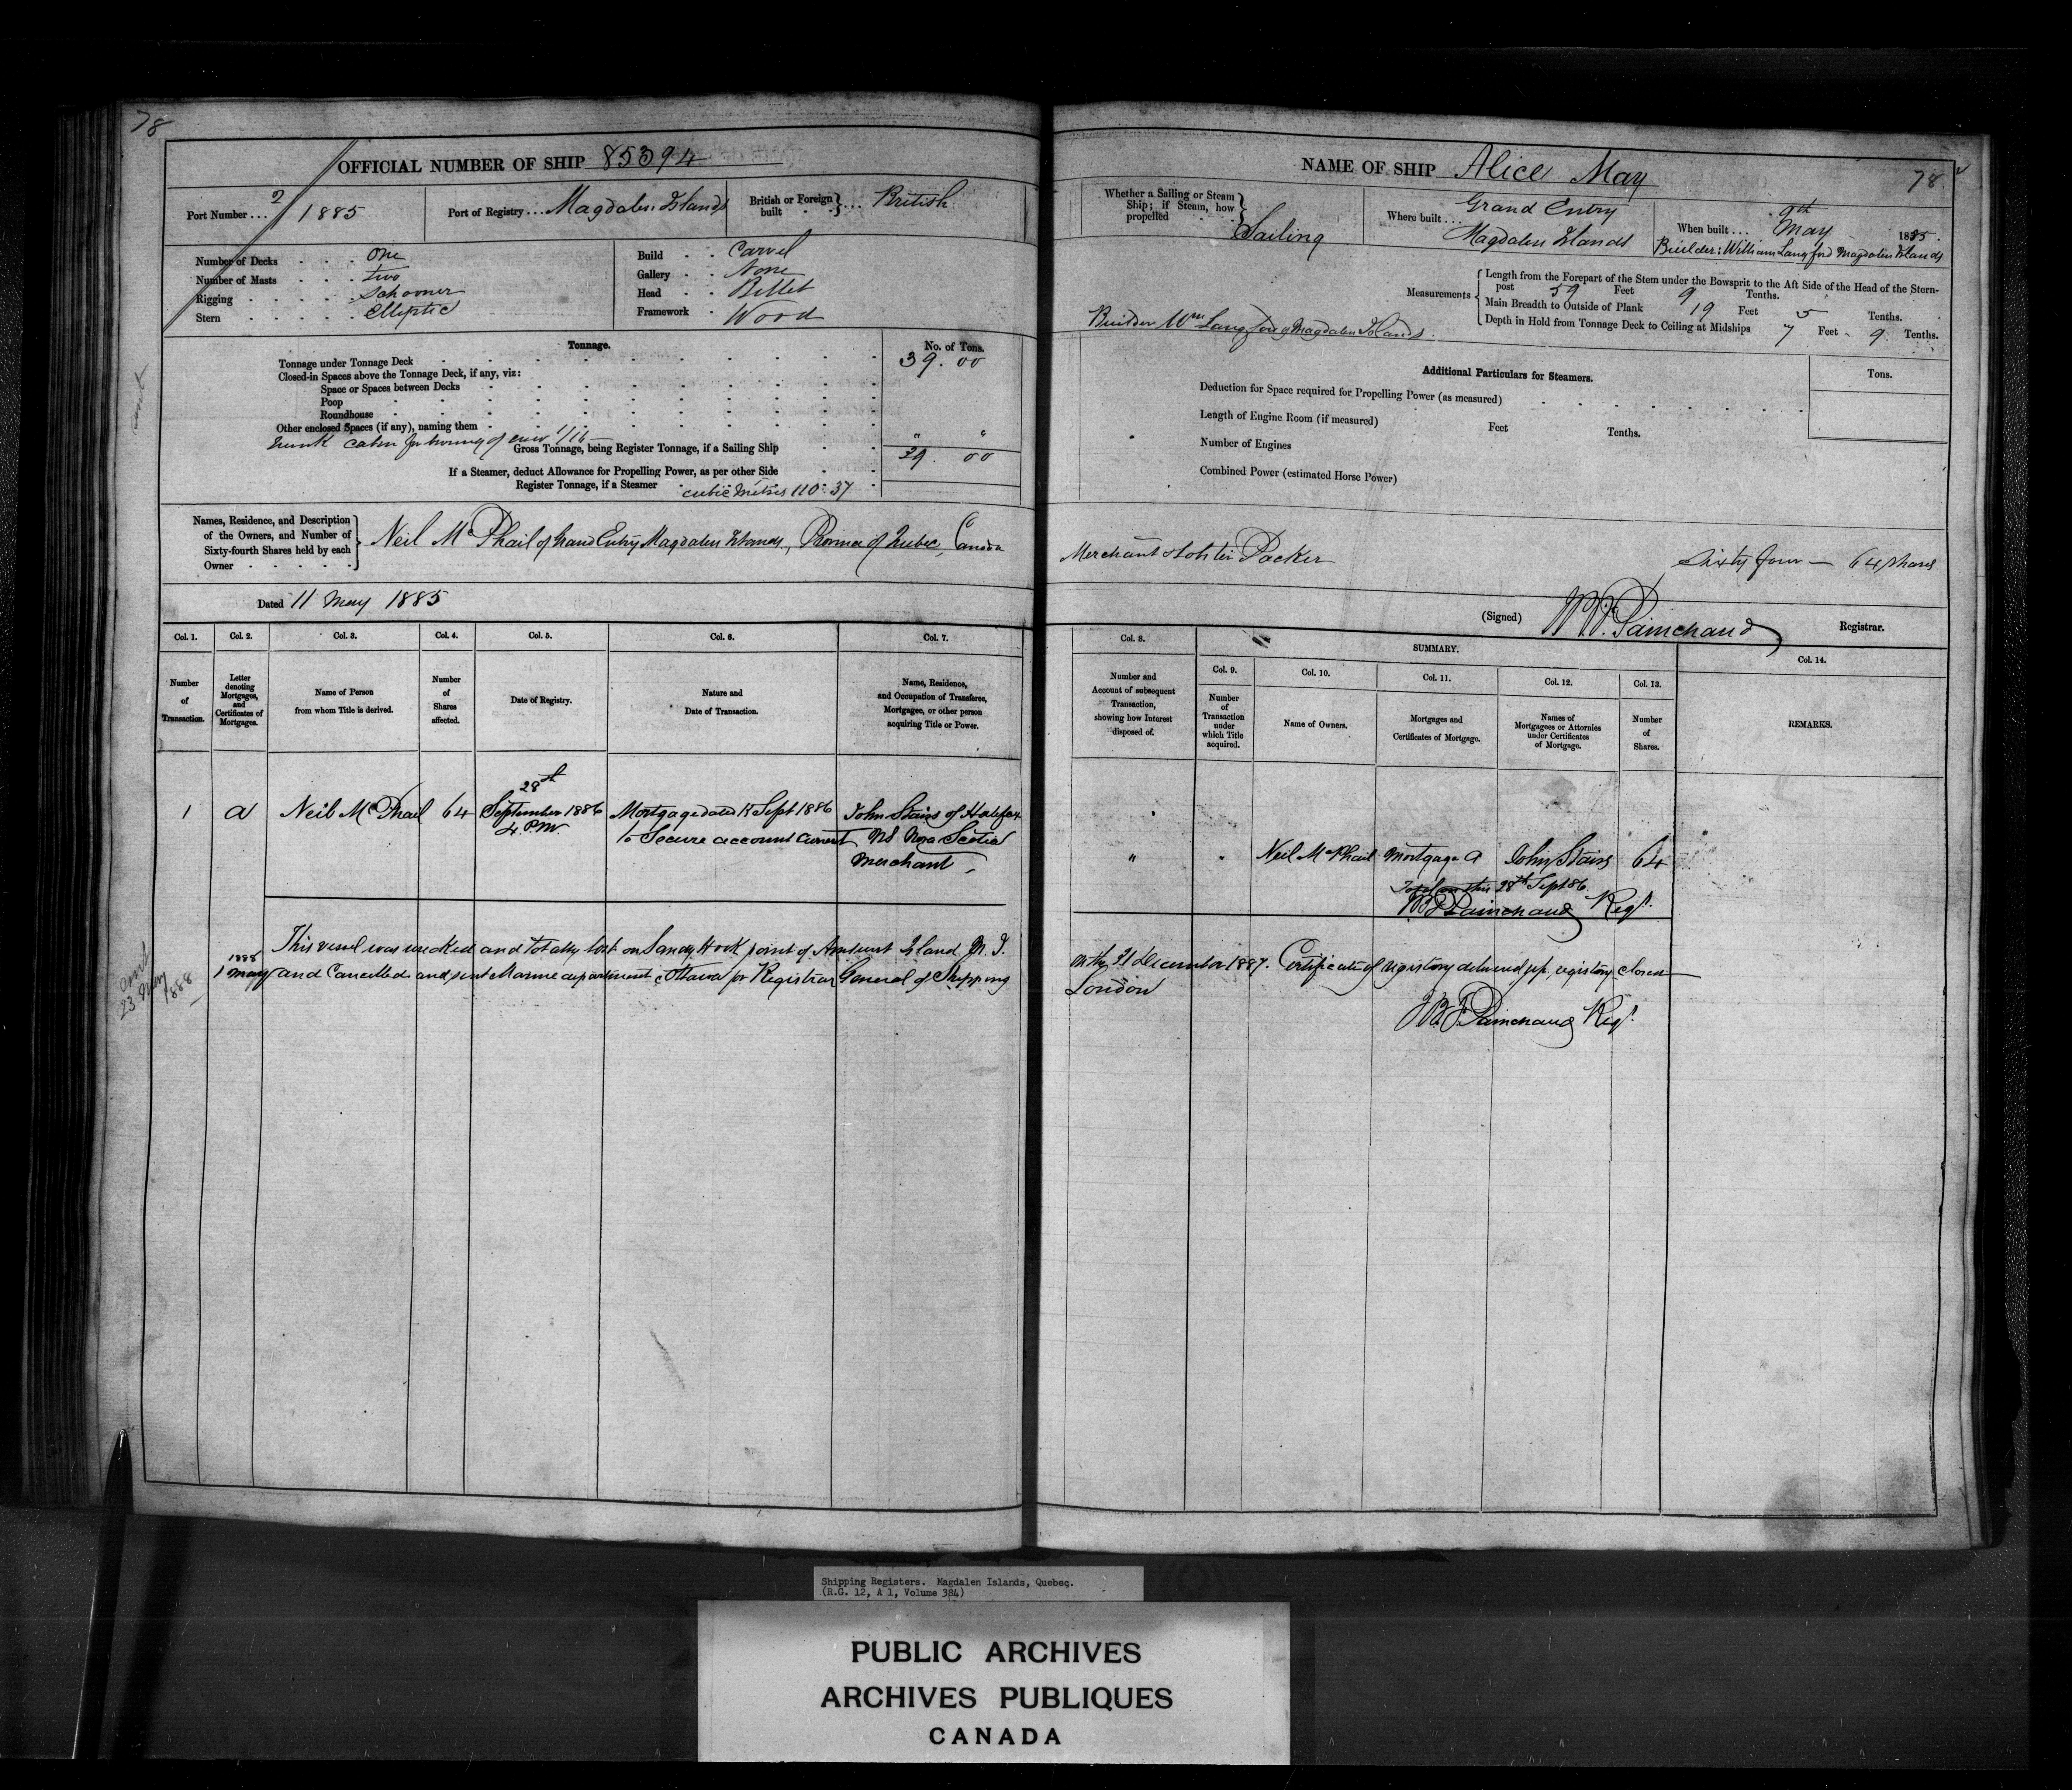 78
OFFICIAL NUMBER OF SHIP 85394
Port Number... 2/1885
Port of Registry... Magdalen Islands
British or Foreign built ... British
Number of Decks One
Number of Masts two
Rigging Schooner
Stern Elliptic
Build Carvel
Gallery None
Head Billet
Framework Wood
Tonnage.
No. of Tons.
Tonnage under Tonnage Deck 39.00
Closed-in Spaces above the Tonnage Deck, if any, viz:
Space or Spaces between Decks
Poop
Roundhouse
Other enclosed Spaces (if any), naming them
trunk cabin for housing of crew 1/16 " "
Gross Tonnage, being Register Tonnage, if a Sailing Ship 39.00
If a Steamer, deduct Allowance for Propelling Power, as per other Side
Register Tonnage, if a Steamer
cubic metres 110.37
Names, Residence, and Description of the Owners, and Number of Sixty-fourth Shares held by each Owner
Neil McPhail of Grand Entry Magdalen Islands, Province of Quebec, Canada
Dated 11 May 1885
Col. 1. Col. 2. Col. 3. Col. 4. Col. 5. Col. 6. Col. 7.
Number of Transaction.
Letter denoting Mortgages, and Certificates of Mortgages.
Name of Person from whom Title is derived.
Number of Shares affected.
Date of Registry.
Nature and Date of Transaction.
Name, Residence, and Occupation of Transferee, Mortgagee, or other person acquiring Title or Power.
1 A Neil McPhail 64
28th September 1886 4. PM
Mortgage dated Sept 1886
to Secure account current
John Stairs of Halifax
NS Nova Scotia
Merchant
This vessel was wrecked and totally lost on Sandy Hook point of Amherst Island M. I.
1888
1 May and Cancelled and sent Marine department Ottawa for Registrar General of Shipping
23 May 1888
NAME OF SHIP Alice May
78
Whether a Sailing or Steam Ship; if Steam, how propelled
Sailing
Where built...
Grand Entry
Magdalen Islands
When built... 9th May 1885.
Builder: William Langford Magdalen Islands
Measurements
Length from the Forepart of the Stem under the Bowsprit to the Aft Side of the Head of the Stern-
post 59 Feet 9 Tenths.
Main Breadth to Outside of Plank 19 Feet 5 Tenths.
Depth in Hold from Tonnage Deck to Ceiling at Midships 7 Feet 9 Tenths.
Builder Wm Langford Magdalen Islands.
Additional Particulars for Steamers.
Tons.
Deduction for Space required for Propelling Power (as measured)
Length of Engine Room (if measured) Feet Tenths.
Number of Engines
Combined Power (estimated Horse Power)
Merchant & Lobster Packer
Sixty four — 64 shares
(Signed) Painchaud Registrar.
Col. 8.
SUMMARY.
Col. 9. Col. 10. Col. 11. Col. 12. Col. 13. Col. 14.
Number and Account of subsequent Transaction, showing how Interest disposed of.
Number of Transaction under which Title acquired.
Name of Owners.
Mortgages and Certificates of Mortgage.
Names of Mortgagees or Attornies under Certificates of Mortgage.
Number of Shares.
REMARKS.
" " Neil McPhail Mortgage A John Stairs 64
this 28th Sept 86.
Painchaud Regr.
on the 21 December 1887. Certificate of registory delivered up, registory closed
London
Painchaud Regr.
Shipping Registers. Magdalen Islands, Quebec.
(R.G. 12, A 1, Volume 384)
PUBLIC ARCHIVES
ARCHIVES PUBLIQUES
CANADA